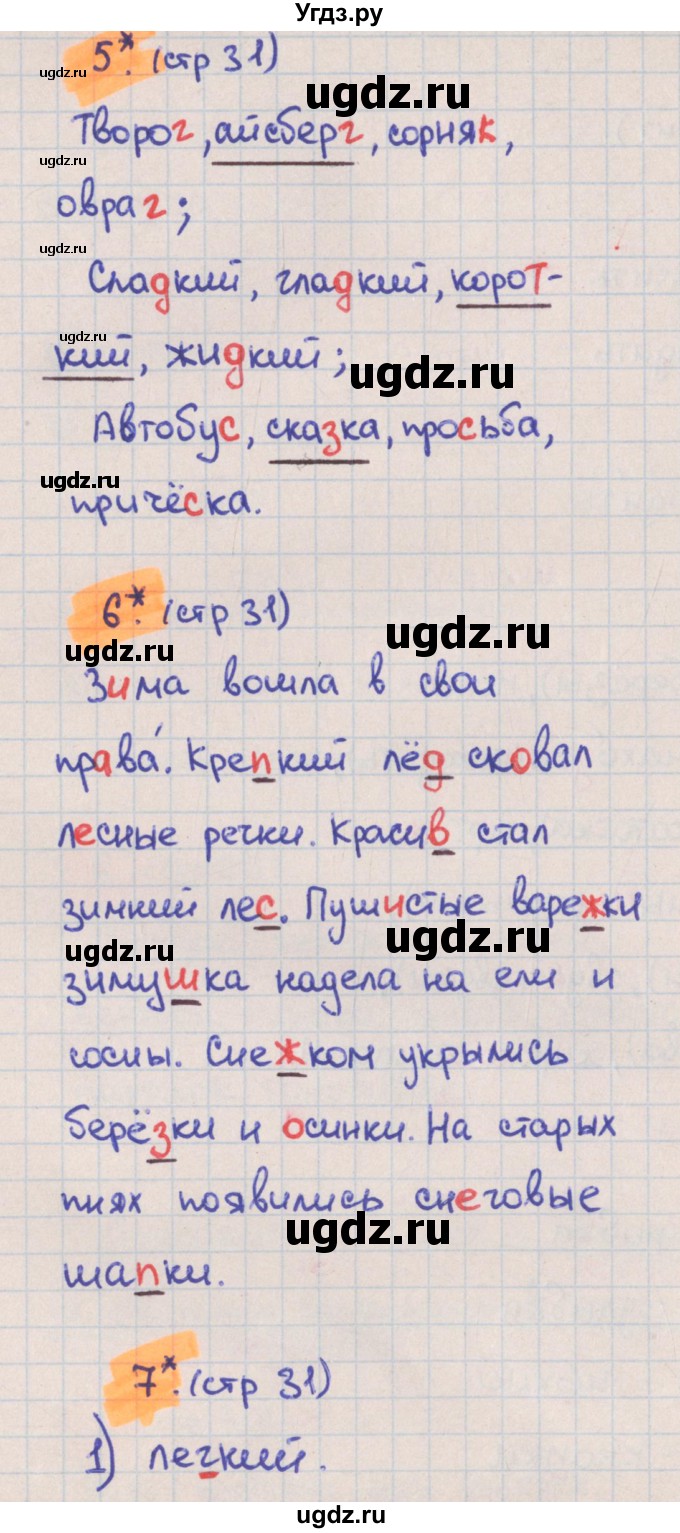 Угдз.ру
ugdz.ru 5*. (стр 31)
ugdz.ru
Творог, айсберг, сорняк,
ugdz.ru
овраг;
ugdz.ru
Сладкий, гладкий, корот-
ugdz.ru
кий, жидкий;
ugdz.ru
Автобус, сказка, просьба,
ugdz.ru
причёска.
6*. (стр 31)
ugdz.ru
ugdz.ru
Зима вошла в свои
права́. Крепкий лёд сковал
лесные речки. Красив стал
зимний лес. Пушистые варежки
ugdz.ru
ugdz.ru
зимушка надела на ели и
сосны. Снежком укрылись
берёзки и осинки. На старых
пнях появились снеговые
ugdz.ru
шапки.
7*. (стр 31)
1) легкий.
ugdz.ru